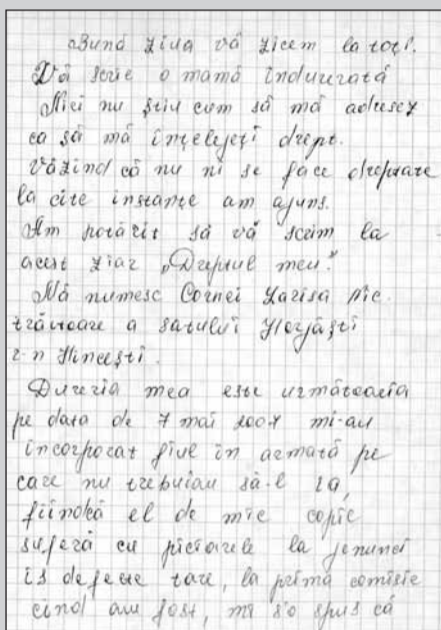 Bună ziua vă zicem la toți.
Vă scrie o mamă îndurerată
Nici nu știu cum să mă adresez
ca să mă înțelejeți drept.
Văzînd că nu ni se face dreptate
la cîte instanțe am ajuns.
Am hotărît să vă scrim la
acest ziar „Dreptul meu."
Mă numesc Cornei Larisa Nic.
trăitoare a satului
r-n Hîncești.
Durerea mea este următoarea
pe data de 7 mai 2007 mi-au
încorporat fiul în armată pe
care nu trebuiau să-l ia,
fiindcă el de mic copic
suferă cu picioarele la jenunci
îs defecte tare, la prima comisie
cînd am fost, mi s-o spus că